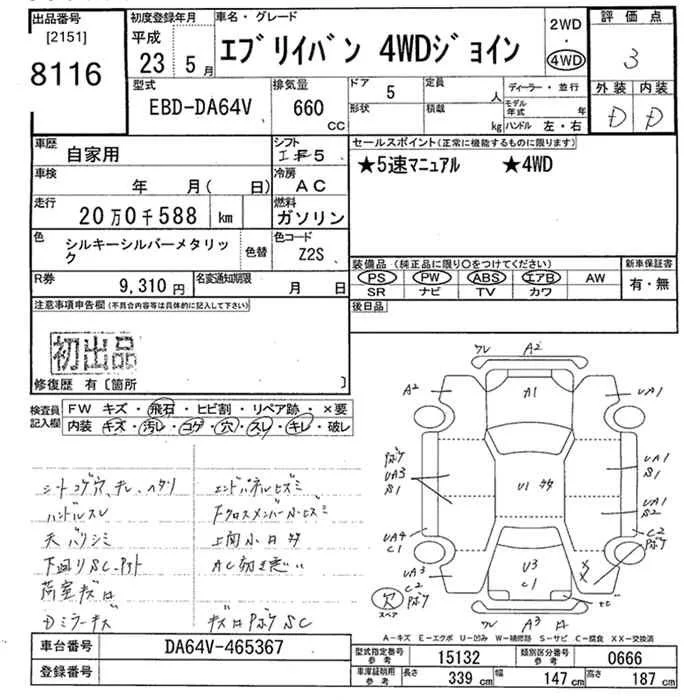 出品番号
[2151]
8116
初度登録年月
平成
23 5月
車名・グレード
エブリイバン 4WDジョイン
2WD
・
4WD
評価点
3
外装 内装
D D
型式
EBD-DA64V
排気量
660
CC
ドア
5
形状
定員
人
積載
kg
ディーラー・並行
モデル年式 年
ハンドル 左・右
車歴
自家用
シフト
5
車検
年 月( 日)
冷房
AC
走行
20万0千588 km
燃料
ガソリン
色
シルキーシルバーメタリック
色替
色コード
Z2S
R券
9,310円
名変通知期限
月 日
セールスポイント(正常に機能するものに限ります)
★5速マニュアル ★4WD
装備品(純正品に限り○をつけてください)
PS PW ABS エアB AW
SR ナビ TV カワ
新車保証書
有・無
後日品
注意事項申告欄(不具合内容等は具体的に記入して下さい)
初出品
修復歴 有〔箇所 〕
検査員
記入欄
FW キズ・飛石・ヒビ割・リペア跡・×要
内装 キズ・汚レ・コゲ・穴・スレ・キレ・破レ
シートコゲ穴、キレ、ヘタリ
ハンドルスレ
天バリシミ
下回りSC
荷室キズ
Dミラーキズ
AC効き悪い
SC
A2
A1
A2
UA1
UA3
S1
U1
UA1
S1
UA1
S2
UA4
C1
C2
UA3
C2
U3
C1
A3
穴
スペア
A-キズ E-エクボ U-凹み W-補修跡 S-サビ C-腐食 XX-交換済
車台番号
DA64V-465367
登録番号
型式指定番号
参考
15132
類別区分番号
参考
0666
車庫証明用
参考
長さ
339 cm
幅
147 cm
高さ
187 cm